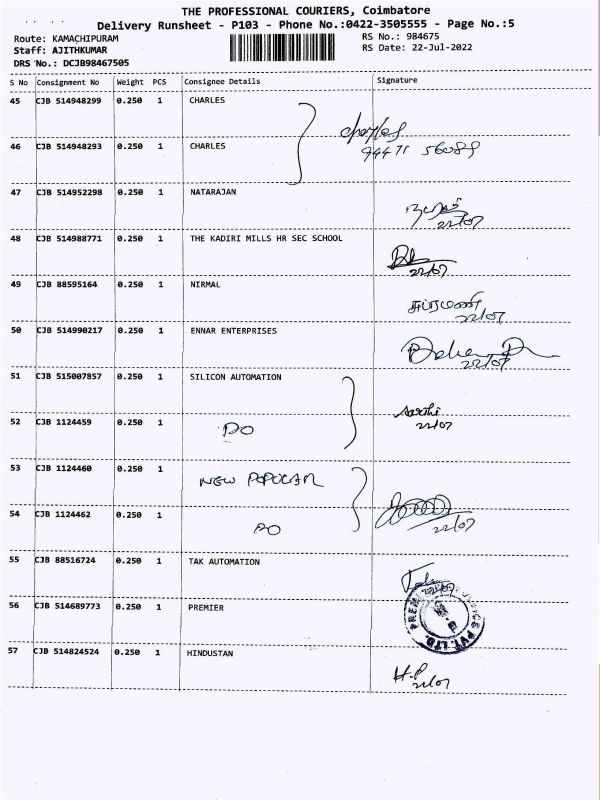 THE PROFESSIONAL COURIERS, Coimbatore
Delivery Runsheet - P103 - Phone No.:0422-3505555 - Page No.:5
Route: KAMACHIPURAM
RS No.: 984675
Staff: AJITHKUMAR
RS Date: 22-Jul-2022
DRS No.: DCJB98467505
S No Consignment No Weight PCS Consignee Details Signature
45 CJB 514948299 0.250 1 CHARLES
charles
94471 56089
46 CJB 514948293 0.250 1 CHARLES
47 CJB 514952298 0.250 1 NATARAJAN
22/07
48 CJB 514988771 0.250 1 THE KADIRI MILLS HR SEC SCHOOL
22/07
49 CJB 88595164 0.250 1 NIRMAL
சுப்ரமணி
22/07
50 CJB 514990217 0.250 1 ENNAR ENTERPRISES
22/07
51 CJB 515007857 0.250 1 SILICON AUTOMATION
22/07
52 CJB 1124459 0.250 1 DO
53 CJB 1124460 0.250 1 NEW POPULAR
54 CJB 1124462 0.250 1 DO
22/07
55 CJB 88516724 0.250 1 TAK AUTOMATION
22/07
56 CJB 514689773 0.250 1 PREMIER
PVT. LTD.
57 CJB 514824524 0.250 1 HINDUSTAN
H.P
22/07